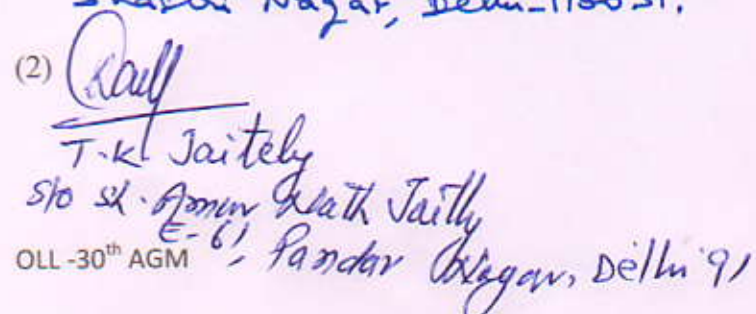 Nagar, Delhi-110051.
(2)
T.K. Jaitely
S/o Sh. Amar Nath Jaitly
E-61, Pandav Nagar, Delhi 91
OLL -30th AGM